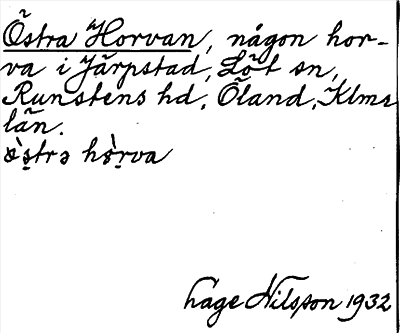 Östra Horvan, någon hor-
va i Järpstad, Löt sn,
Runstens hd, Öland, Klms
län.
hage Nilsson 1932